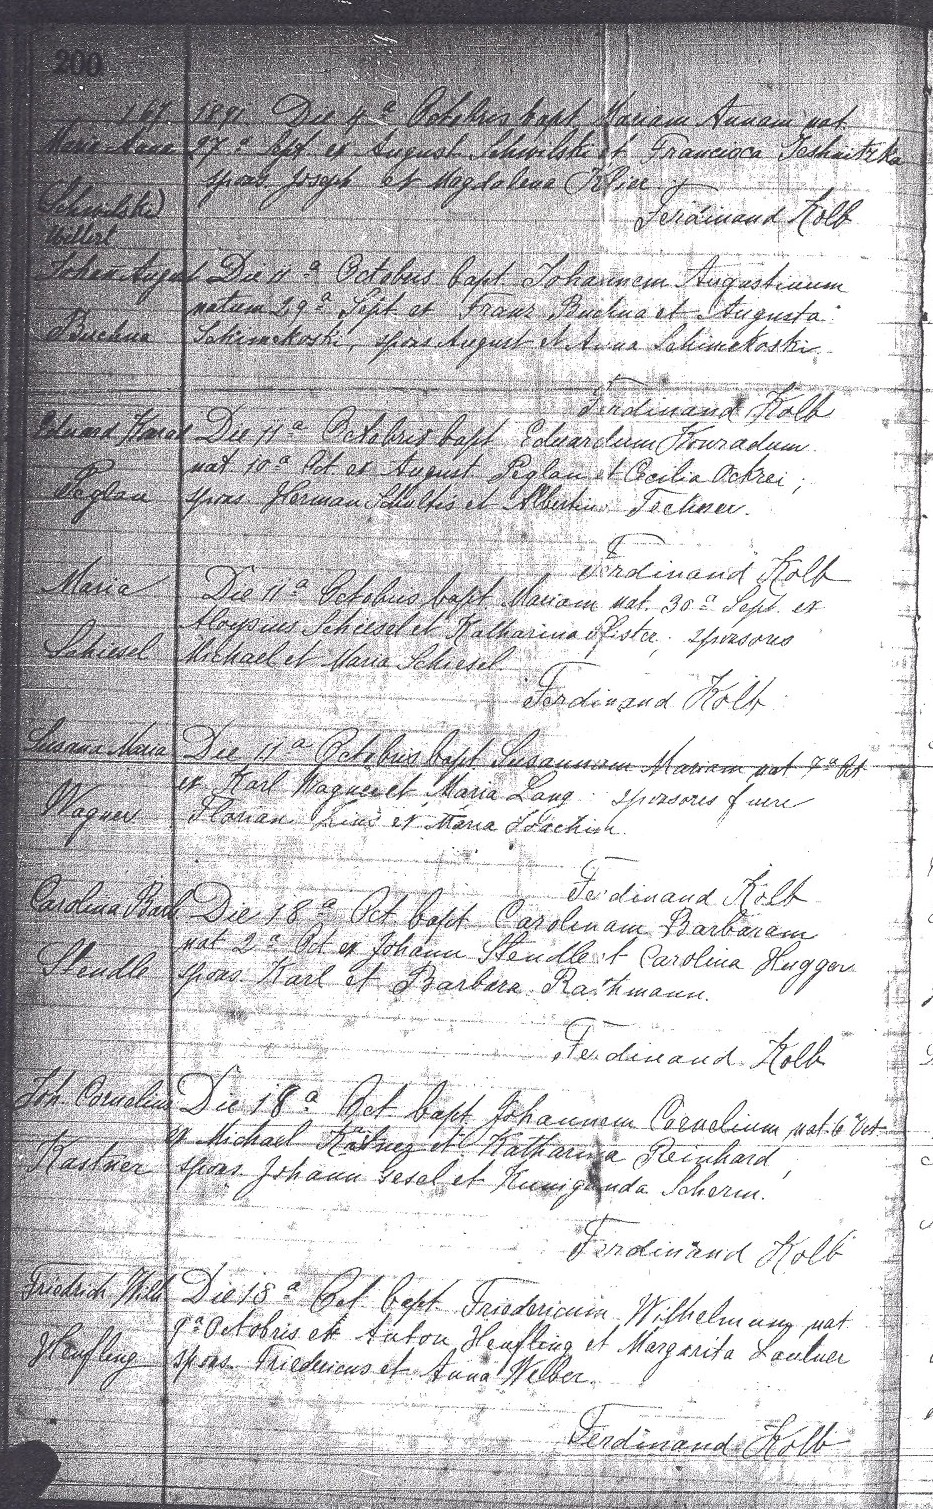 200
167. 1891. Die 4a Octobris bapt Mariam Annam nat.
Marie Anna 27a Sept ex August Schwilski et Francisca
spons. Joseph et Magdalena Klier
Ferdinand Kolb
(Schwilski)
Johan August Die 11a Octobris bapt. Johannem Augustinum
natum 29a Sept. ex Franz Buchna et Augusta
Buchna Schimekoski, spons August et Anna Schimekoski.
Ferdinand Kolb
Eduard Konrad Die 11a Octobris bapt. Eduardum Konradum
nat. 10a Oct ex August Peglau et Cecilia Ockrei;
Peglau spons. Herman Schultis et Albertina Techner.
Ferdinand Kolb
Maria Die 11a Octobris bapt Mariam nat. 30a Sept. ex
Aloysius Schiesel et Katharina Pfister, sponsores
Schiesel Michael et Maria Schiesel
Ferdinand Kolb
Susana Maria Die 11a Octobris bapt Susannam Mariam nat 7a Oct
ex Karl Wagner et Maria Lang sponsores fuere
Wagner Florian et Maria Joachim.
Ferdinand Kolb
Carolina Barb Die 18a Oct bapt. Carolinam Barbaram
nat 2a Oct ex Johann Stendle et Carolina Hugger
Stendle spons. Karl et Barbara Rathmann.
Ferdinand Kolb
Joh. Cornelius Die 18a Oct bapt. Johannem Cornelium nat. 6a Oct
ex Michael Kastner et Katharina Reinhard,
Kastner spons. Johann Gesel et Kunigunda Scherm.
Ferdinand Kolb
Friedrich Wilh Die 18a Oct bapt. Friedericum Wilhelmum nat
9a Octobris ex Anton Henfling et Margarita Laulner
Henfling spons. Friedericus et Anna Welber.
Ferdinand Kolb